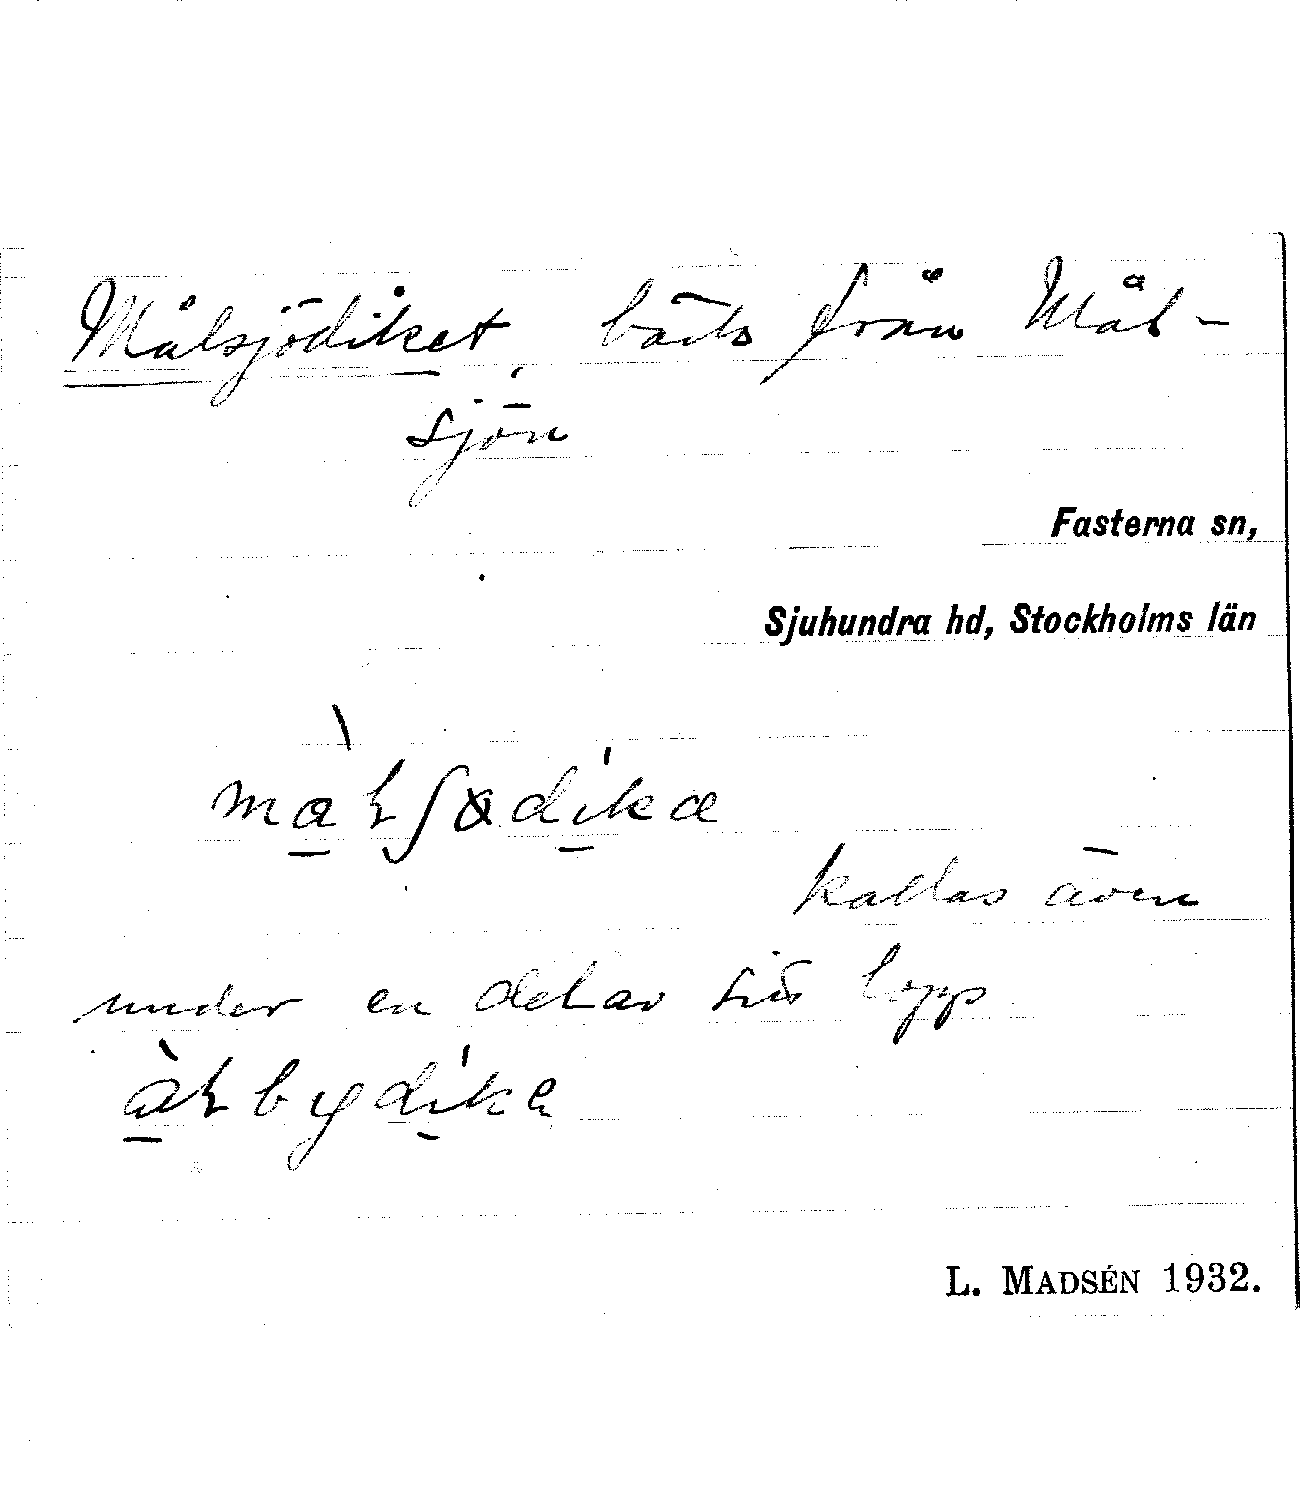 Målsjödiket, bäck från Mål-
sjön
Fasterna sn,
Sjuhundra hd, Stockholms län
kallas även
under en del av sitt lopp
L. MADSÉN 1932.